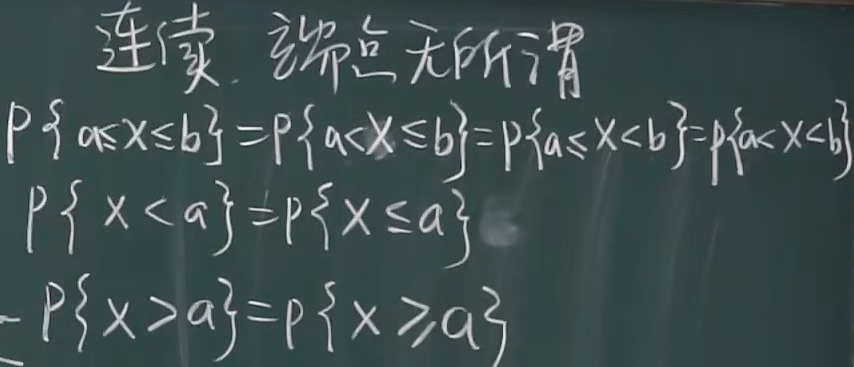 连续. 端点无所谓
P{a≤X≤b}=P{a<X≤b}=P{a≤X<b}=P{a<X<b}
P{X<a}=P{X≤a}
P{X>a}=P{X≥a}